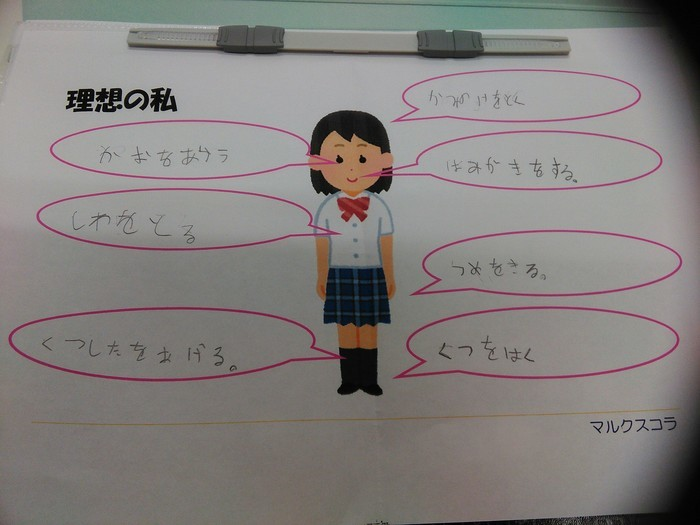 理想の私
かおをあらう
はみがきをする。
しわをとる
つめをきる。
くつしたをあげる。
くつをはく
マルクスコラ